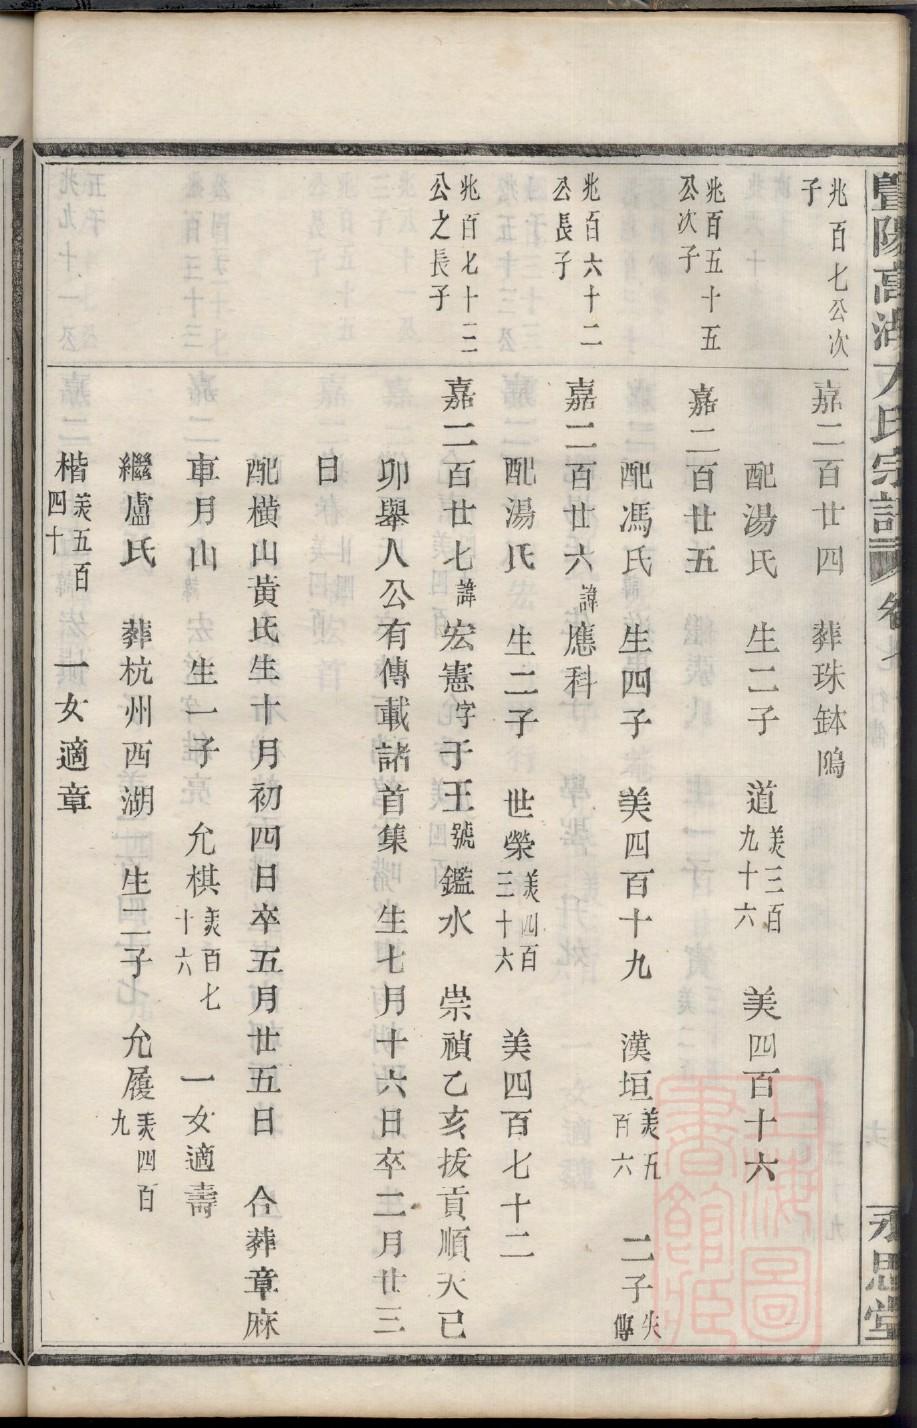 暨陽高湖 氏宗譜 卷七 永思堂
兆百七公次子
嘉二百廿四 葬珠鉢隝
配湯氏 生二子 道美三百九十六 美四百十六
兆百五十五公次子
嘉二百廿五
配馮氏 生四子 美四百十九 漢垣美五百六 二子失傳
兆百六十二公長子
嘉二百廿六諱應科
配湯氏 生二子 世榮美四百三十六 美四百七十二
兆百七十三公之長子
嘉二百廿七諱宏憲字于王號鑑水 崇禎乙亥拔貢順天已
卯舉人公有傳載諸首集 生七月十六日卒二月廿三
日
配橫山黃氏生十月初四日卒五月廿五日 合葬章麻
車月山 生一子 允棋美百七十六 一女適壽
繼盧氏 葬杭州西湖 生二子 允履美四百九
楷美五百四十 一女適章
上海圖書館藏